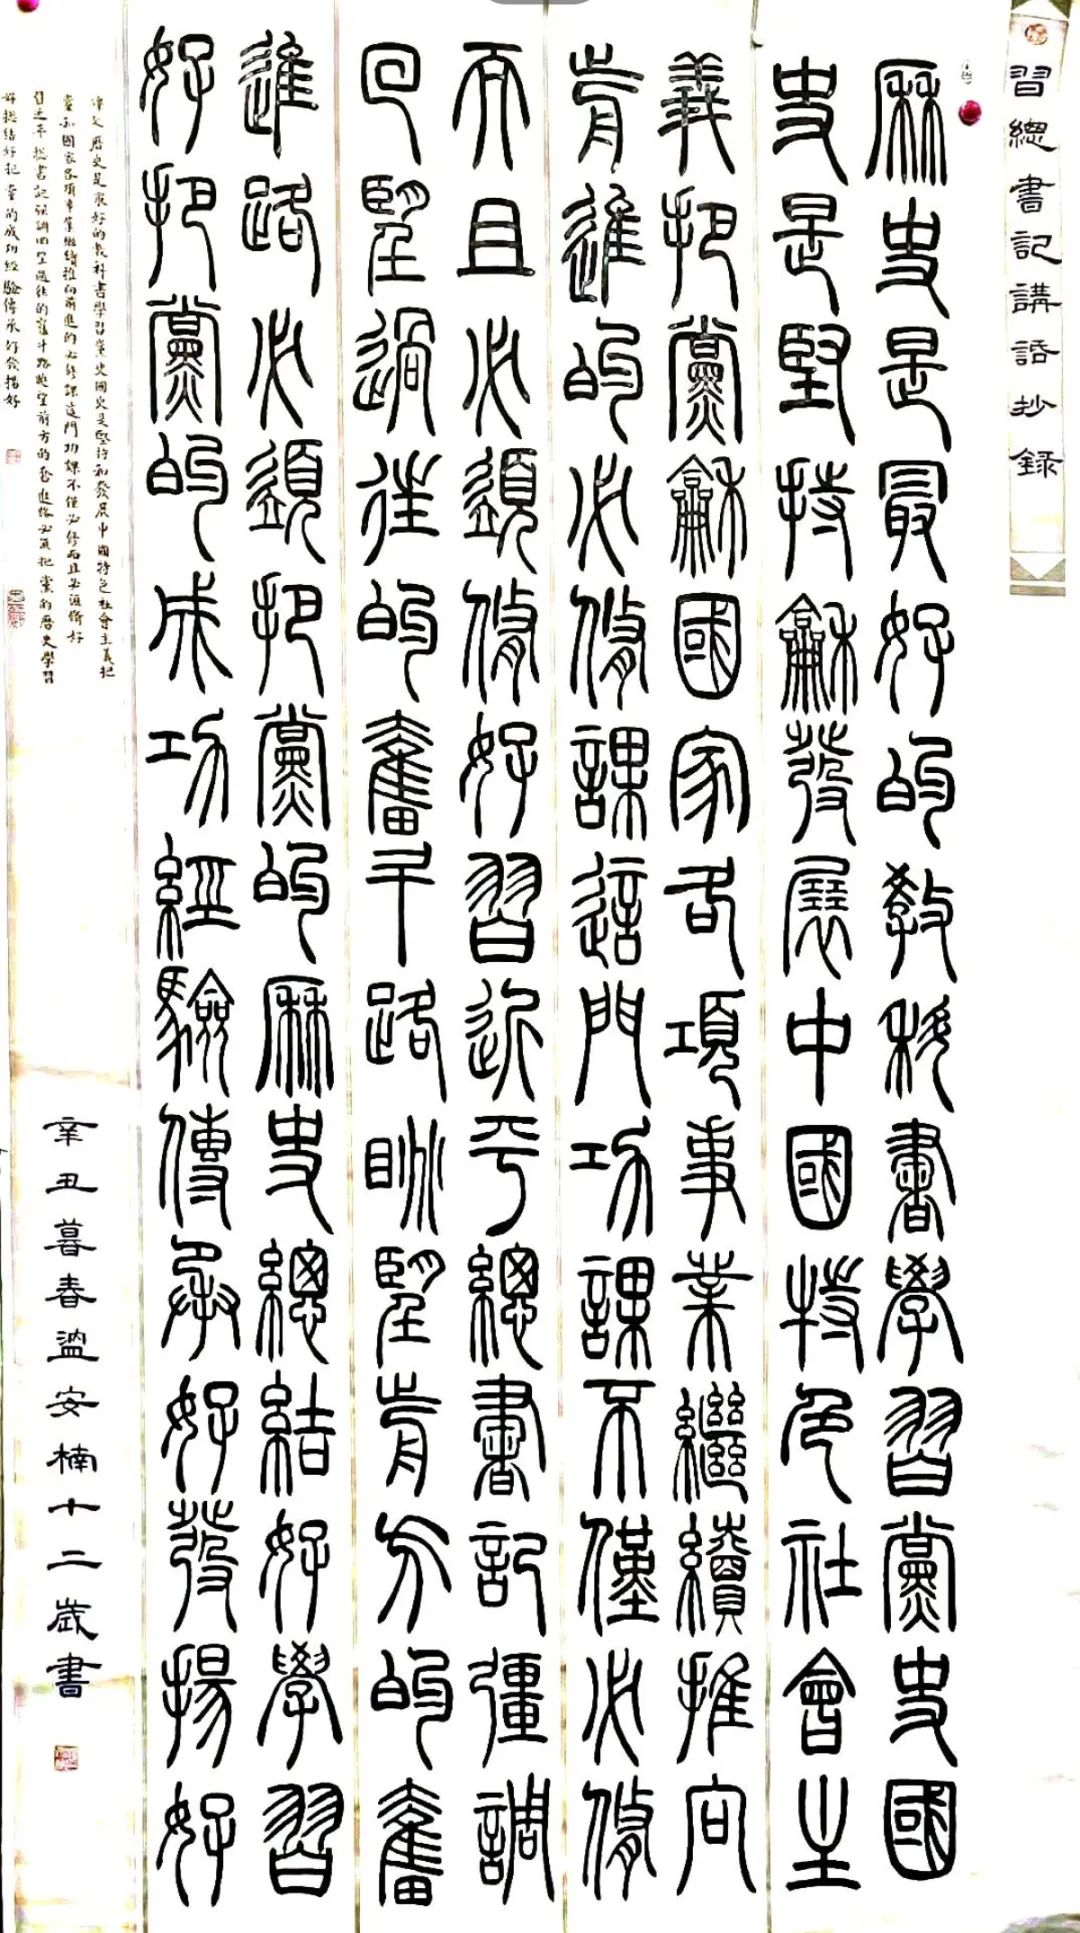 習總書記講話抄録
歷史是最好的教科書學習黨史國
史是堅持龢發展中國特色社會主
義把黨龢國家各項事業繼續推向
前進的必修課這門功課不僅必修
而且必須修好習近平總書記彊調
回望過往的奮斗路眺望前方的奮
進路必須把黨的歷史總結好學習
好把黨的成功經驗傳承好發揚好
釋文 歷史是最好的教科書學習黨史國史是堅持和發展中國特色社會主義把
黨和國家各項事業繼續推向前進的必修課這門功課不僅必修而且必須修好
習近平總書記强調回望過往的奮斗路眺望前方的奮進路必須把黨的歷史學習
好總結好把黨的成功經驗傳承好發揚好
辛丑暮春溢安楠十二歲書